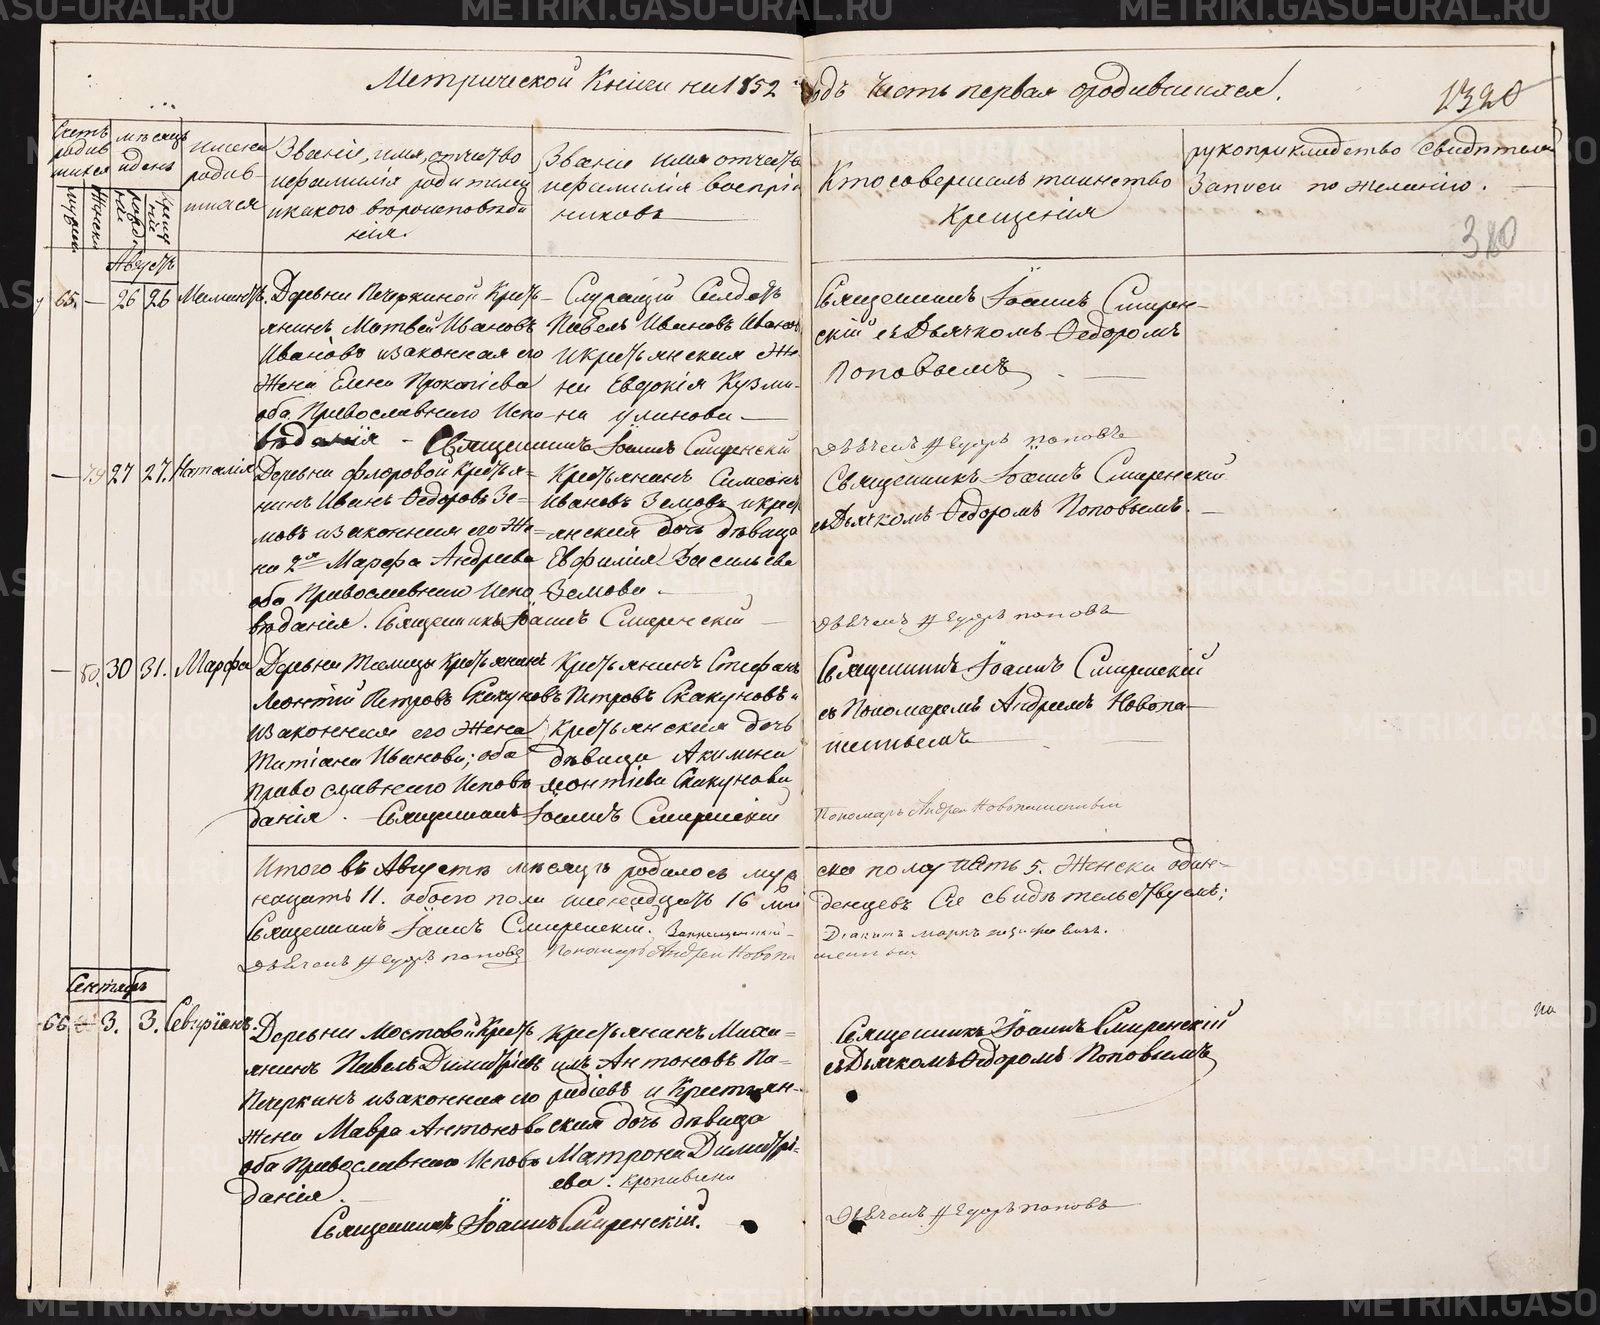 Метрической Книги на 1852 й годъ Часть первая о родившихся.
1320
380
Счетъ родившихся
мѣсяцъ и день
имена родившихся
Званіе, имя, отчество
и фамилія родителей
и какого вѣроисповѣда
нія.
Званіе имя отчество
и фамилія воспріем
никовъ
Кто совершалъ таинство
Крещенія
рукоприкладство свидѣтелей
Записи по желанію.
мужеска
Женска
рожденія
крещенія
Августъ
65. — 26 26
Деревни Печеркиной Кресть-
янинъ Матвей Ивановъ
Ивановъ и законная его
Жена Елена Прокопіева
оба Православнаго Испо
вѣданія — Священникъ Іоаннъ Смиренскій
Служащій Солдатъ
Павелъ Ивановъ Иванов
и крестьянская Же-
на Евдокія Кузми-
на
Священникъ Іоаннъ Смирен-
скій съ Дьячкомъ Ѳедоромъ
Поповымъ
Дьячекъ Федоръ Поповъ
— 79 27 27. Наталія
Деревни Флоровой Крестья-
нинъ Иванъ Ѳедоровъ Зе-
мовъ и законная его Же-
на 2я Марфа Андреева
оба Православнаго Испо
вѣданія. Священникъ Іоаннъ Смиренскій
Крестьянинъ Симеонъ
Ивановъ Земовъ и крест
янская дочь дѣвица
Евфимія Васильева
Земова.
Священникъ Іоаннъ Смиренскій
съ Дьячкомъ Ѳедоромъ Поповымъ.
Дьячекъ Федоръ Поповъ
— 80. 30 31. Марфа
Деревни Крестьянинъ
Леонтій Петровъ Скакуновъ
и законная его Жена
Татіана Иванова; оба
Православнаго Исповѣ
данія. Священникъ Іоаннъ Смиренскій
Крестьянинъ Стефанъ
Петровъ Скакуновъ и
Крестьянская дочь
дѣвица Акилина
Леонтіева Скакунова
Священникъ Іоаннъ Смиренскій
съ Пономаремъ Андреемъ Новопа-
шеннымъ
Пономарь Андрей Новопашенный
Итого въ Августѣ мѣсяцѣ родилось муже
ска полу пять 5. Женска один-
надцать 11. обоего пола шестнадцать 16 мла
денцевъ Сіе свидѣтельствуемъ:
Священникъ Іоаннъ Смиренскій.
Дьячекъ Федоръ Поповъ Пономарь Андрей Новопа
шенный
Сентябрь
66 3. 3.
Деревни Мостовой Кресть
янинъ Павелъ Димитріевъ
Печеркинъ и законная его
Жена Мавра Антонова
оба Православнаго Исповѣ
данія.
Священникъ Іоаннъ Смиренскій.
Крестьянинъ Миха-
илъ Антоновъ Па-
и Крестьян-
ская дочь дѣвица
Матрона Димитрі-
ева.
Священникъ Іоаннъ Смиренскій
съ Дьячкомъ Ѳедоромъ Поповымъ
Дьячекъ Федоръ Поповъ
METRIKI.GASU-URAL.RU